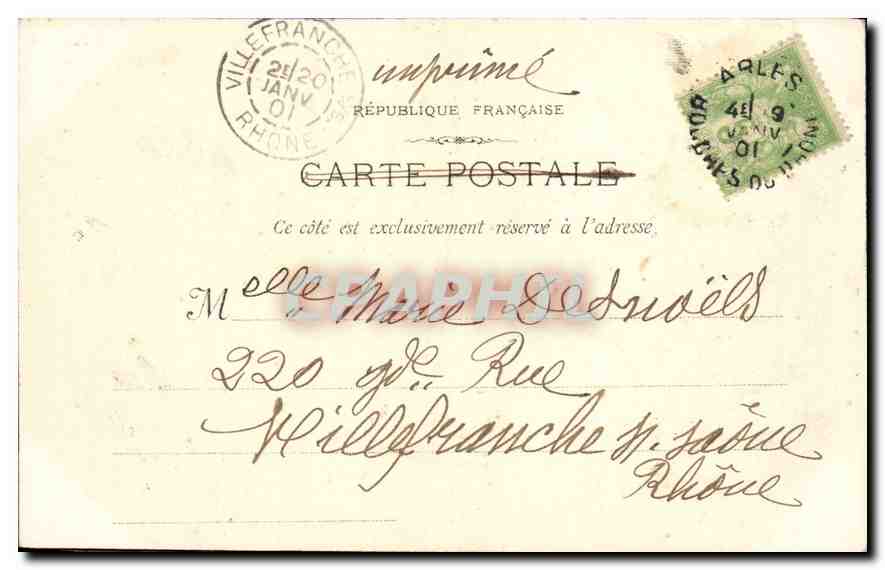 VILLEFRANCHE-S-S
2E/20
JANV
01
RHONE
imprimé
ARLES
4E 9
JANV
01
BOUCHES DU RHONE
RÉPUBLIQUE FRANÇAISE
CARTE POSTALE
Ce côté est exclusivement réservé à l'adresse.
CPAPHIL
Melle Marie Desnoëls
220 gde Rue
Villefranche s. saône
Rhône